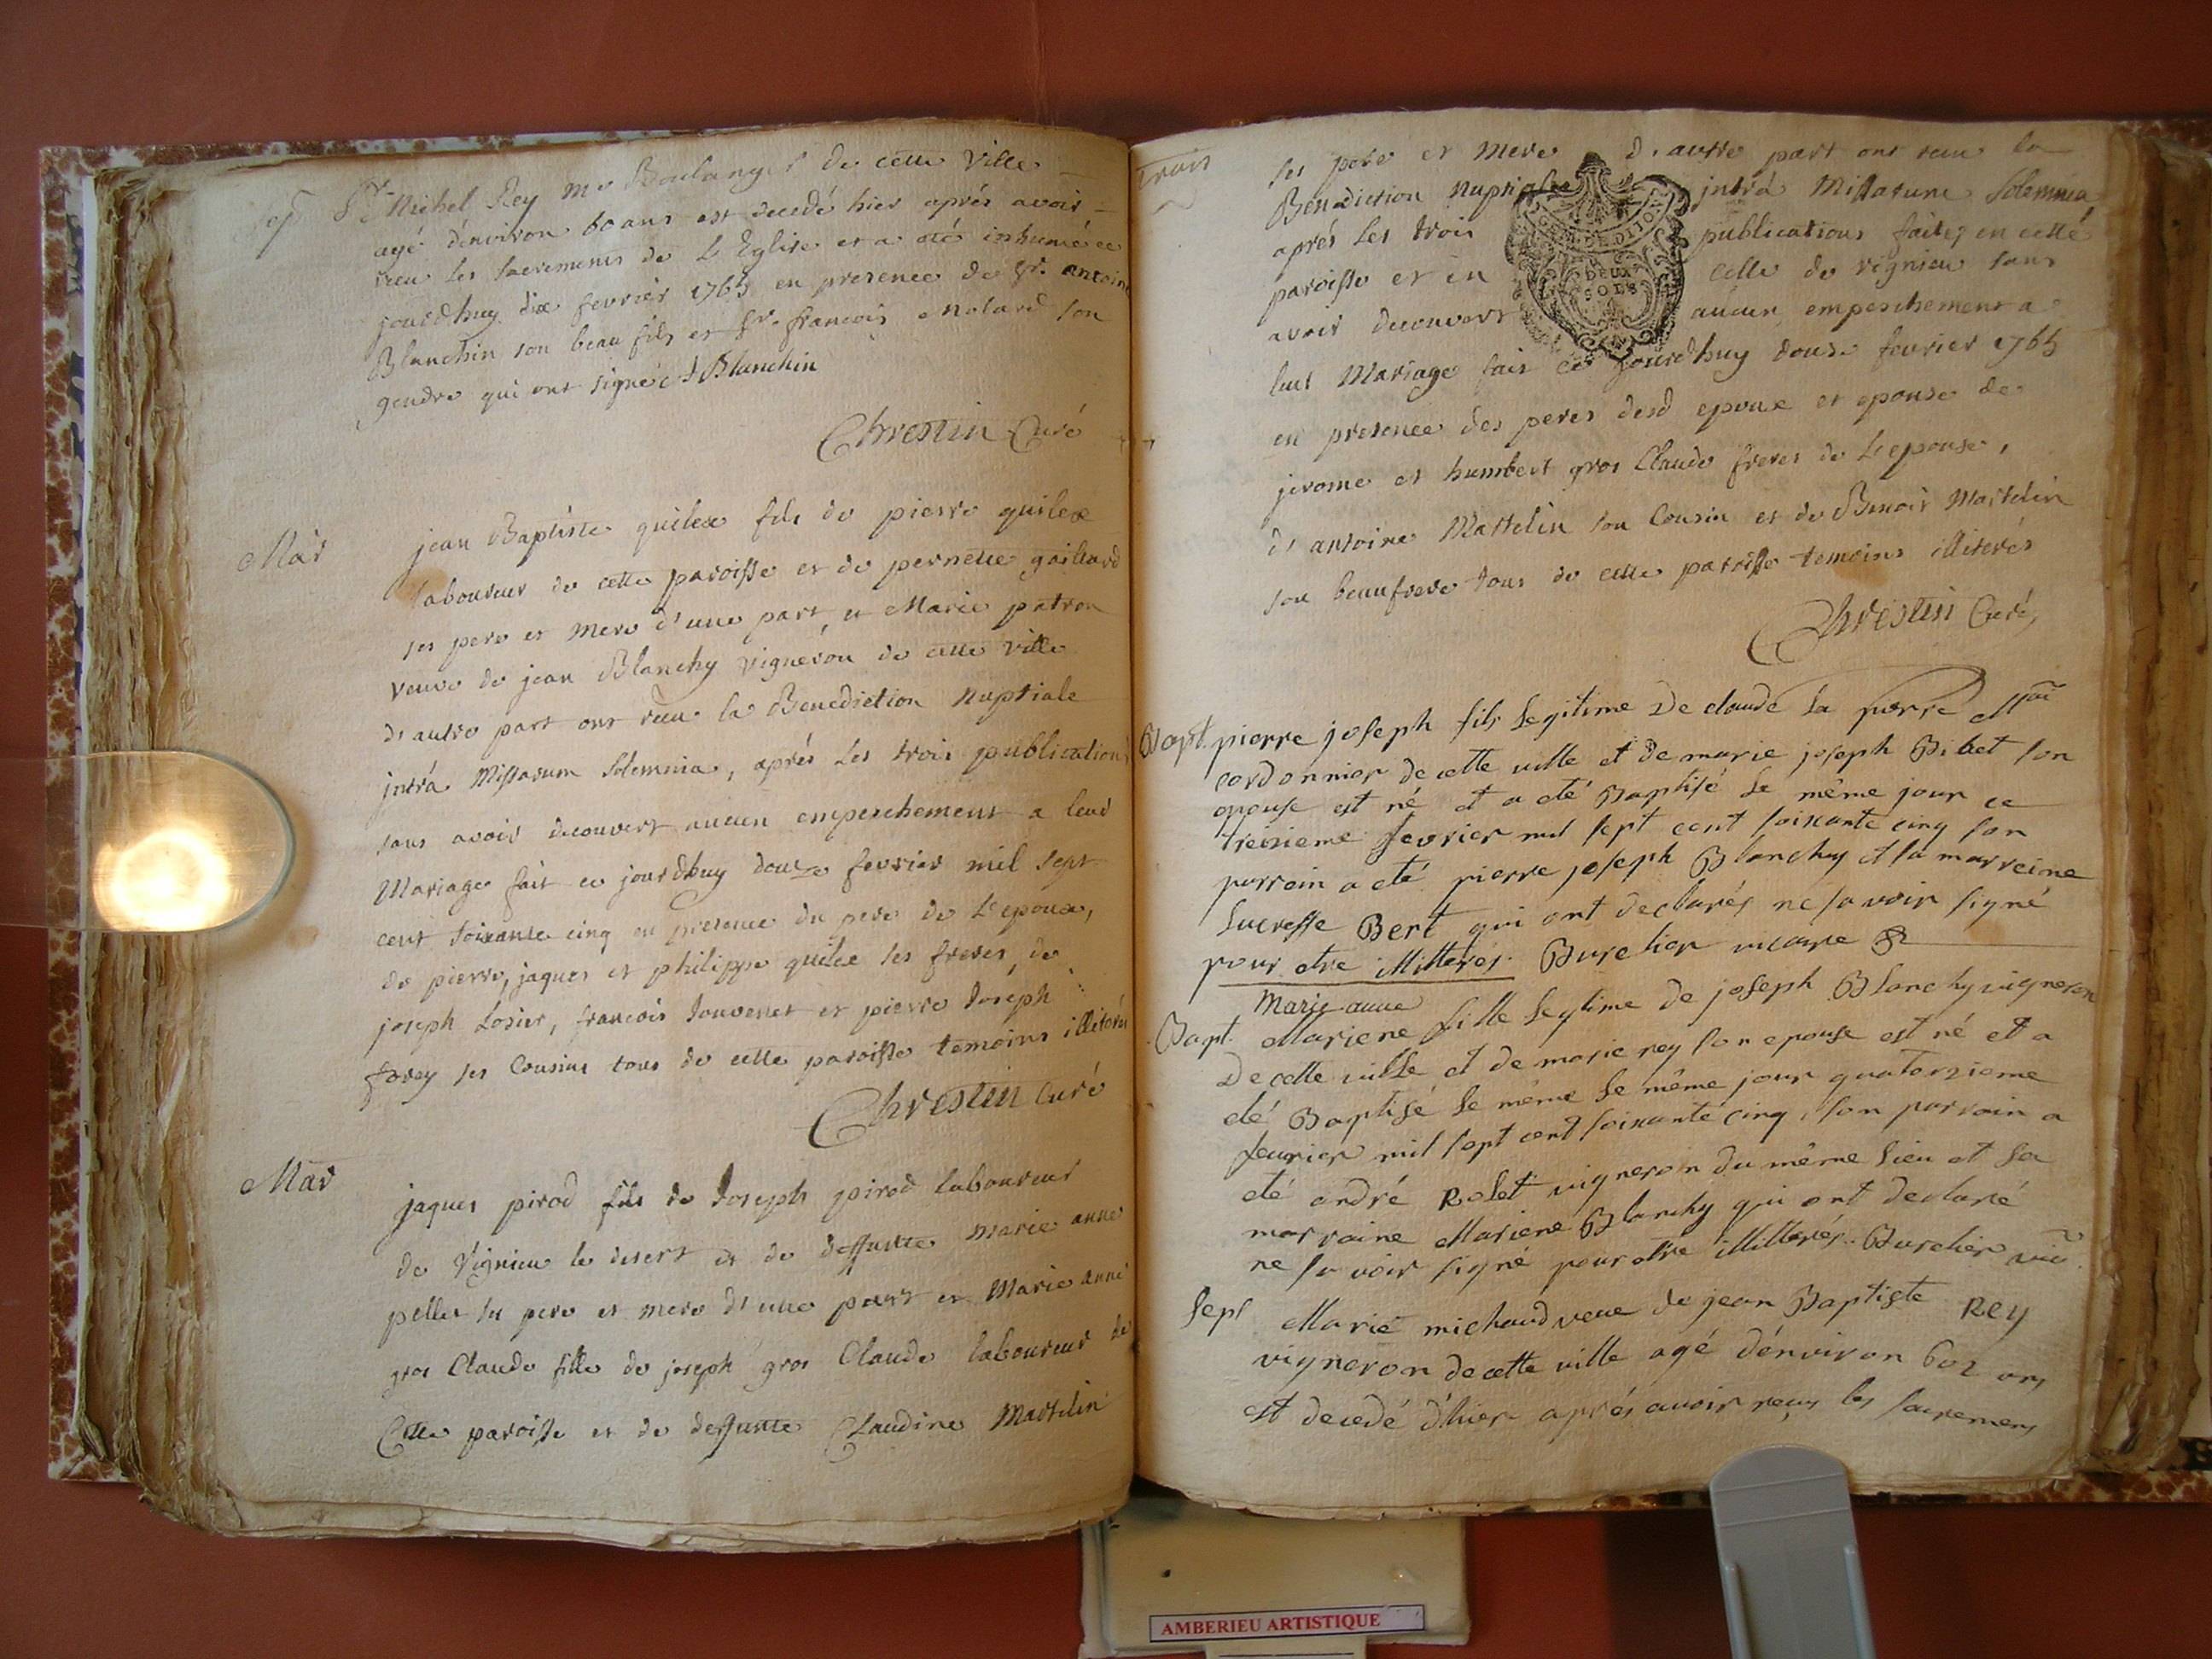 Sep Sr Michel Rey Me Boulanger de cette ville
agé d'environ 60 ans est decedé hier aprés avoir
receu les sacrements de L'Eglise et a eté inhumé ce
jourdhuy dix fevrier 1765 en presence de Sr. antoine
Blanchin son beau fils et Sr. francois son
gendre qui ont signé Blanchin
Chrestin Curé
Mar jean Baptiste quilex fils de pierre quilex
laboureur de cette paroisse et de pernette gaillard
ses pere et mere d'une part, et Marie patron
veuve de jean Blanchy vigneron de cette ville
d'autre part ont receu la Benediction nuptiale
intrà Missarum solemnia, aprés les trois publications
sans avoir decouvert aucun empeschement a leur
Mariage fait ce jourdhuy douze fevrier mil sept
cent soixante cinq en presence du pere de L'epoux,
de pierre, jaques et philippe quilex ses freres, de
joseph Losier, francois Jouvenet et pierre Joseph
forey ses Cousins tous de cette paroisse temoins illiterés
Chrestin Curé
Mar jaques pirod fils de Joseph pirod laboureur
de Vignieu le desert et de deffunte Marie anne
pellet ses pere et mere d'une part et Marie anne
gros Claude fille de joseph gros Claude laboureur de
Cette paroisse et de deffunte Claudine Martelin
trois
ses pere et Mere d'autre part ont receu la
Benediction nuptiale intrà Missarum Solemnia
aprés les trois publications faites en cette
paroisse et en celle de vignieu sans
avoir decouvert aucun empeschement a
leur Mariage fait ce jourdhuy douze fevrier 1765
DEUX
SOLS
en presence des peres desd epoux et epouse de
jerome et humbert gros Claude freres de L'epouse,
d'antoine Martelin son Cousin et de Benoit Martelin
son beaufrere tous de cette paroisse temoins illiterés
Chrestin Curé,
Bapt. pierre joseph fils legitime De claude la pierre
cordonnier de cette ville et de marie joseph Bibet son
epouse est né et a eté Baptisé le même jour ce
treisieme fevrier mil sept cent soixante cinq son
parrain a eté pierre joseph Blanchy et sa marreine
Lucresse Bert qui ont declarés ne savoir signé
pour etre illitterés. Burelier vicaire
Marie anne
Bapt. Mariene fille legtime de joseph Blanchy vigneron
De cette ville et de marie rey son epouse est né et a
eté Baptisé le même le même jour quatorzieme
feurier mil sept cent soixante cinq, son parrain a
eté andré Rolet vigneron du même lieu et sa
marraine Mariene Blanchy qui ont declaré
ne savoir signé pour etre illitterés. Burelier vic
Sepl Marie michaud veue de jean Baptiste Rey
vigneron de cette ville agé d'environ 602 ans
est decedé d'hier aprés avoir reçus les sacremens
AMBERIEU ARTISTIQUE